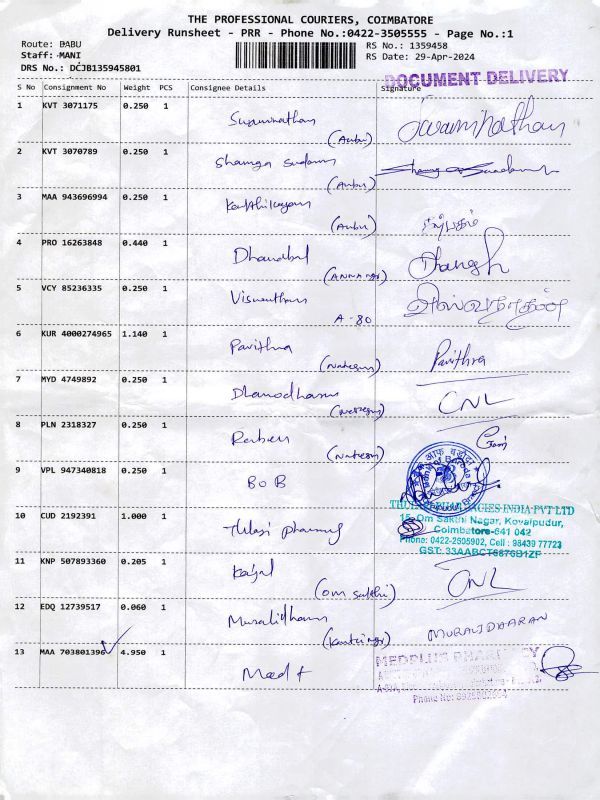 THE PROFESSIONAL COURIERS, COIMBATORE
Delivery Runsheet - PRR - Phone No.:0422-3505555 - Page No.:1
Route: BABU
RS No.: 1359458
Staff: MANI
RS Date: 29-Apr-2024
DRS No.: DCJB135945801
DOCUMENT DELIVERY
S No Consignment No Weight PCS Consignee Details Signature
1 KVT 3071175 0.250 1 Swaminathan Swaminathan
(Anbu)
2 KVT 3070789 0.250 1
(Anbu)
3 MAA 943696994 0.250 1 Karthikayan
(Anbu)
4 PRO 16263848 0.440 1 Dhanabal Dhanesh
(ANNA ngr)
5 VCY 85236335 0.250 1 Viswanathan விஸ்வநாதன்
A-80
6 KUR 4000274965 1.140 1 Pavithra Pavithra
(Natesan)
7 MYD 4749892 0.250 1 Dhamodharan CNL
(Natesan)
8 PLN 2318327 0.250 1
(Natesan)
9 VPL 947340818 0.250 1 BOB
बैंक ऑफ़ बड़ौदा
Bank of Baroda
10 CUD 2192391 1.000 1 Thulasi pharmacy
THULASI PHARMACIES INDIA PVT LTD
15, Om Sakthi Nagar, Kovaipudur,
Coimbatore-641 042
Phone: 0422-2605902, Cell : 98439 77723
GST: 33AABCT6676B1ZF
11 KNP 507893360 0.205 1 Kajal CNL
(om sakthi)
12 EDQ 12739517 0.060 1 Muralidharan MURALIDHARAN
13 MAA 703801396 4.950 1 Med +
MEDPLUS PHARMACY